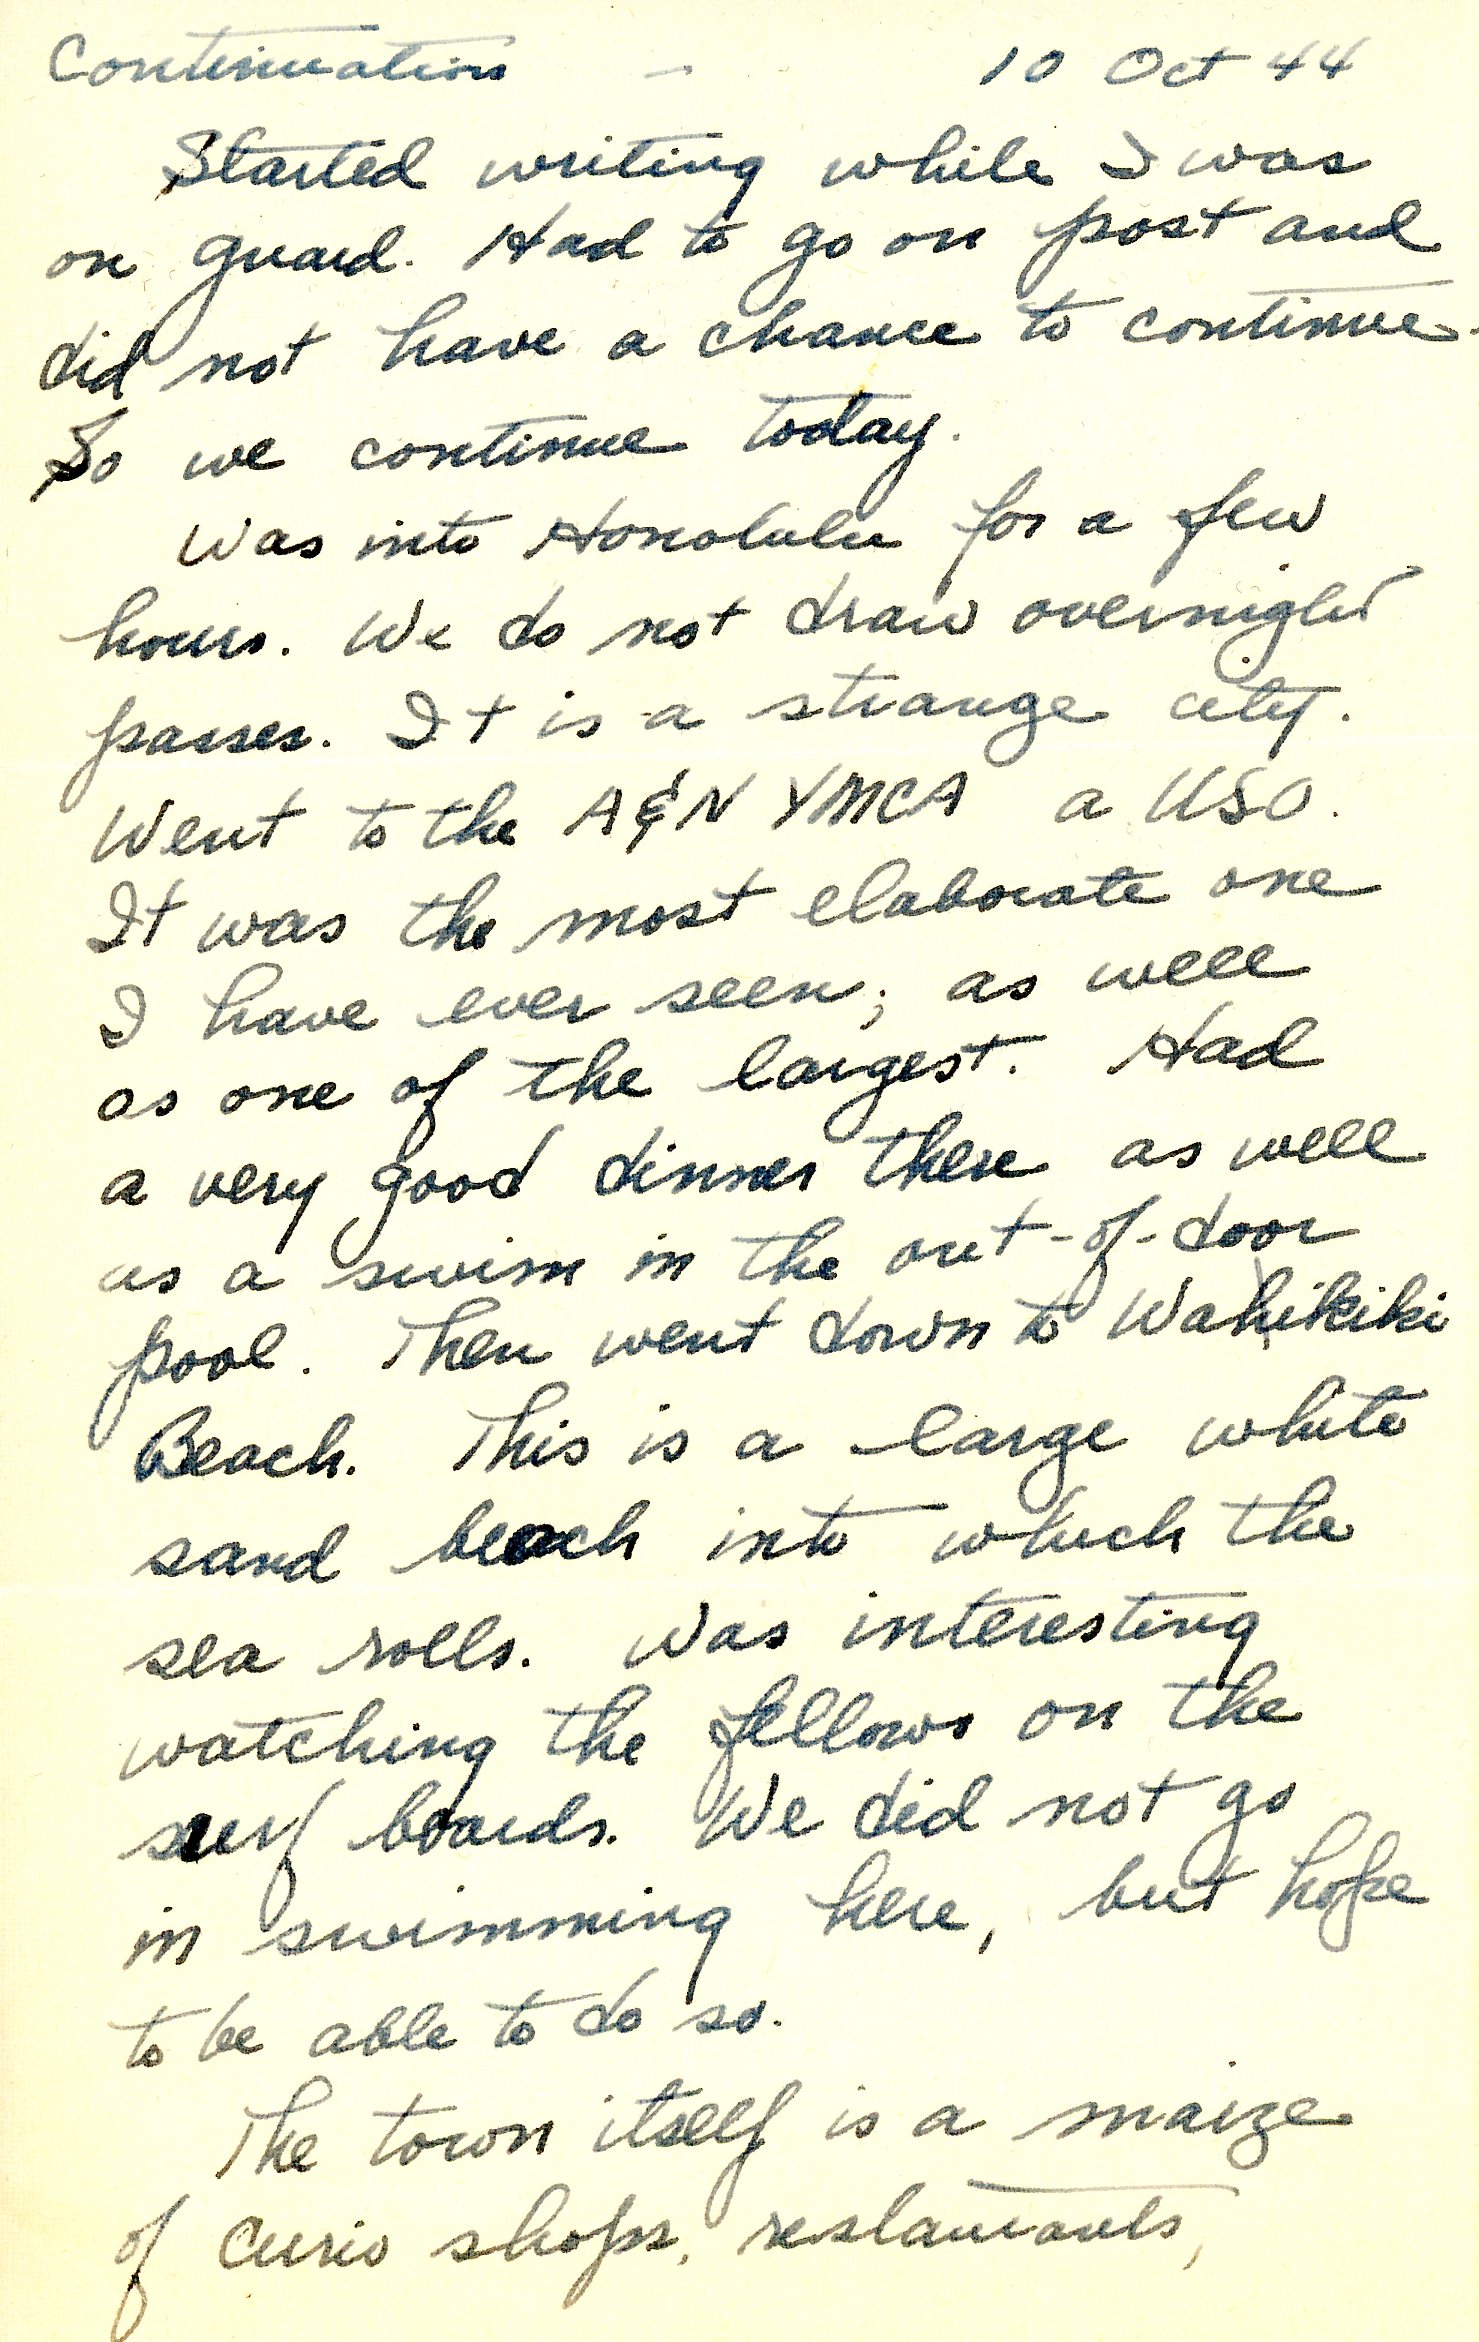 Continuation - 10 Oct 44
Started writing while I was
on guard. Had to go on post and
did not have a chance to continue.
So we continue today.
Was into Honolulu for a few
hours. We do not draw overnight
passes. It is a strange city.
Went to the A&N YMCA a USO.
It was the most elaborate one
I have ever seen; as well
as one of the largest. Had
a very good dinner there as well
as a swim in the out-of-door
pool. Then went down to Wahikiki
Beach. This is a large white
sand beach into which the
sea rolls. Was interesting
watching the fellows on the
surf boards. We did not go
in swimming here, but hope
to be able to do so.
The town itself is a maize
of curio shops, restaurants,